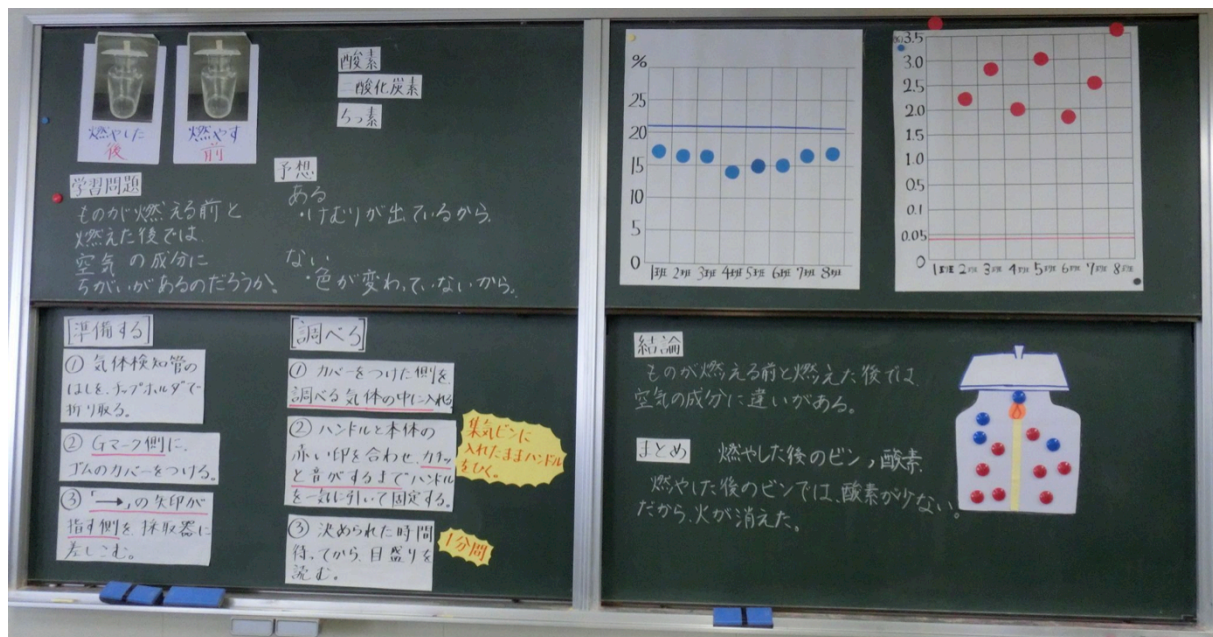 燃やした
後
燃やす
前
酸素
二酸化炭素
ちっ素
学習問題
ものが燃える前と
燃えた後では
空気の成分に
ちがいがあるのだろうか。
予想
ある
・けむりが出ているから
ない
・色が変わっていないから。
[準備する]
① 気体検知管の
はしを、チップホルダで
折り取る。
② Gマーク側に、
ゴムのカバーをつける。
③ 「→」の矢印が
指す側を採取器に
差しこむ。
[調べる]
① カバーをつけた側を
調べる気体の中に入れる
② ハンドルと本体の
赤い印を合わせ、カチッ
と音がするまでハンドル
を一気に引いて固定する。
集気ビンに
入れたままハンドル
をひく。
③ 決められた時間
待ってから、目盛りを
読む。
1分間
%
25
20
15
10
5
0
1班 2班 3班 4班 5班 6班 7班 8班
3.5
3.0
2.5
2.0
1.5
1.0
0.5
0.1
0.05
0
1班 2班 3班 4班 5班 6班 7班 8班
結論
ものが燃える前と燃えた後では、
空気の成分に違いがある。
まとめ 燃やした後のビン、酸素
燃やした後のビンでは、酸素が少ない。
だから、火が消えた。